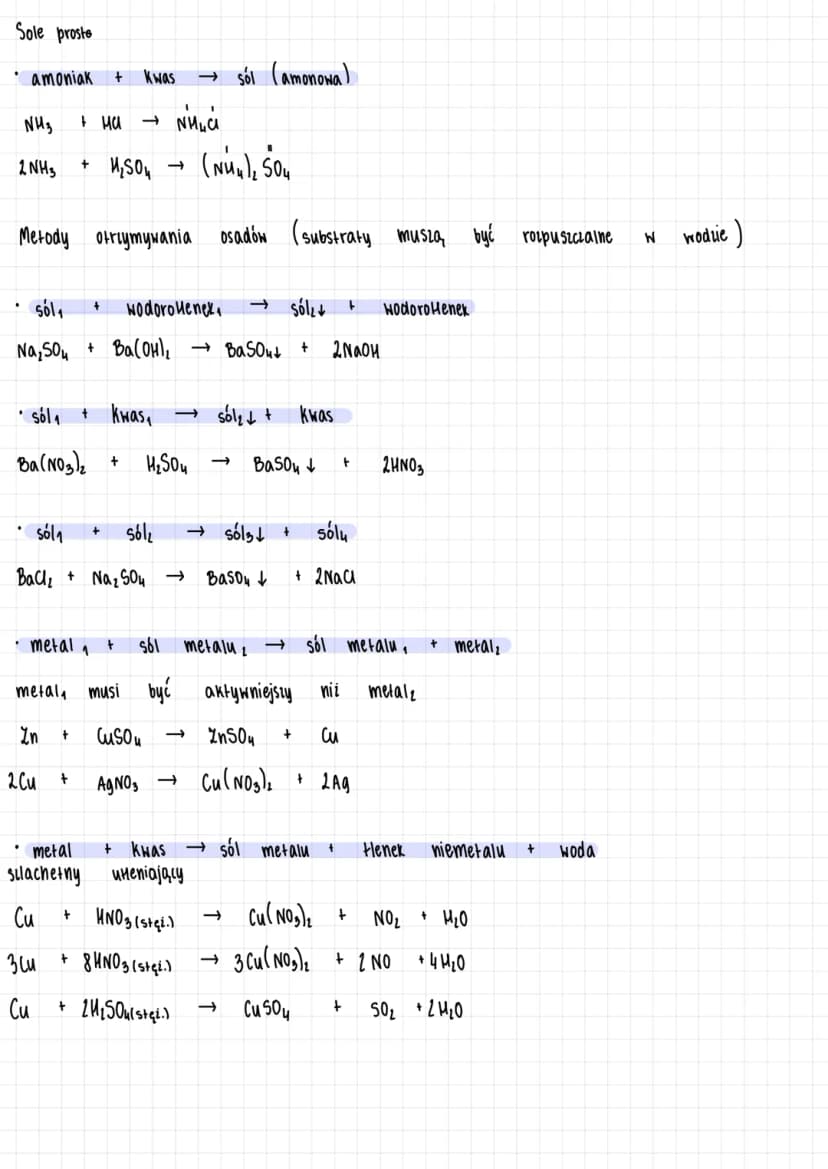 Sole proste
• amoniak + kwas → sól (amonowa)
NH₃ + HCl → NH₄Cl
2NH₃ + H₂SO₄ → (NH₄)₂SO₄
Metody otrzymywania osadów (substraty muszą być rozpuszczalne w wodzie)
• sól₁ + wodorotlenek₁ → sól₂↓ + wodorotlenek
Na₂SO₄ + Ba(OH)₂ → BaSO₄↓ + 2NaOH
• sól₁ + kwas₁ → sól₂↓ + kwas
Ba(NO₃)₂ + H₂SO₄ → BaSO₄↓ + 2HNO₃
• sól₁ + sól₂ → sól₃↓ + sól₄
BaCl₂ + Na₂SO₄ → BaSO₄↓ + 2NaCl
• metal₁ + sól metalu₂ → sól metalu₁ + metal₂
metal₁ musi być aktywniejszy niż metal₂
Zn + CuSO₄ → ZnSO₄ + Cu
2Cu + AgNO₃ → Cu(NO₃)₂ + 2Ag
• metal + kwas → sól metalu + tlenek niemetalu + woda
szlachetny utleniający
Cu + HNO₃(stęż.) → Cu(NO₃)₂ + NO₂ + H₂O
3Cu + 8HNO₃(stęż.) → 3Cu(NO₃)₂ + 2NO + 4H₂O
Cu + 2H₂SO₄(stęż.) → CuSO₄ + SO₂ + 2H₂O